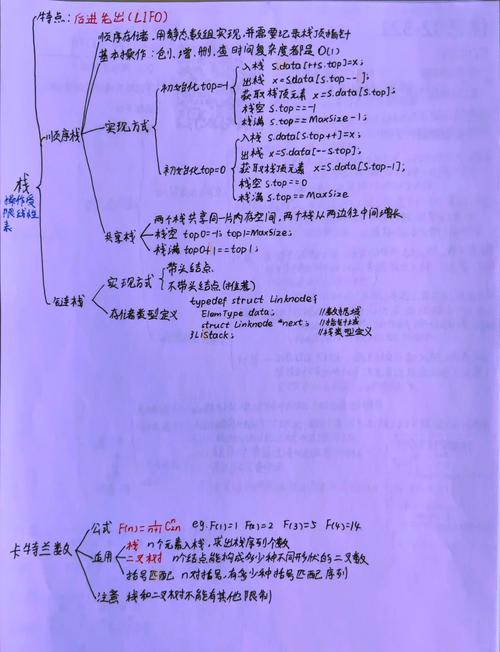 特点：后进先出(LIFO)
顺序存储，用静态数组实现，并需要记录栈顶指针
基本操作：创、增、删、查 时间复杂度都是O(1)
入栈 S.data[++S.top]=x;
出栈 x=S.data[S.top--];
初始化top=-1
获取栈顶元素 x=S.data[S.top];
栈空 S.top==-1
栈满 S.top==MaxSize-1;
顺序栈
实现方式
入栈 S.data[S.top++]=x;
出栈 x=S.data[--S.top];
初始化top=0
获取栈顶元素 x=S.data[S.top-1];
栈空 S.top==0
栈满 S.top==MaxSize
栈
操作受
限线性
表
两个栈共享同一片内存空间，两个栈从两边往中间增长
共享栈
栈空 top0=-1; top1=MaxSize;
栈满 top0+1==top1;
链栈
实现方式
带头结点
不带头结点(推荐)
存储类型定义
typedef struct Linknode{
ElemType data; //数据域
struct Linknode *next; //指针域
}LiStack; //栈类型定义
卡特兰数
公式 F(n)=1/(n+1) C₂ₙⁿ eg. F(1)=1 F(2)=2 F(3)=5 F(4)=14
应用
栈 n个元素入栈，求出栈序列个数
二叉树 n个结点能构成多少种不同形状的二叉数
括号匹配 n对括号，有多少种括号匹配序列
注意 栈和二叉树不能有其他限制